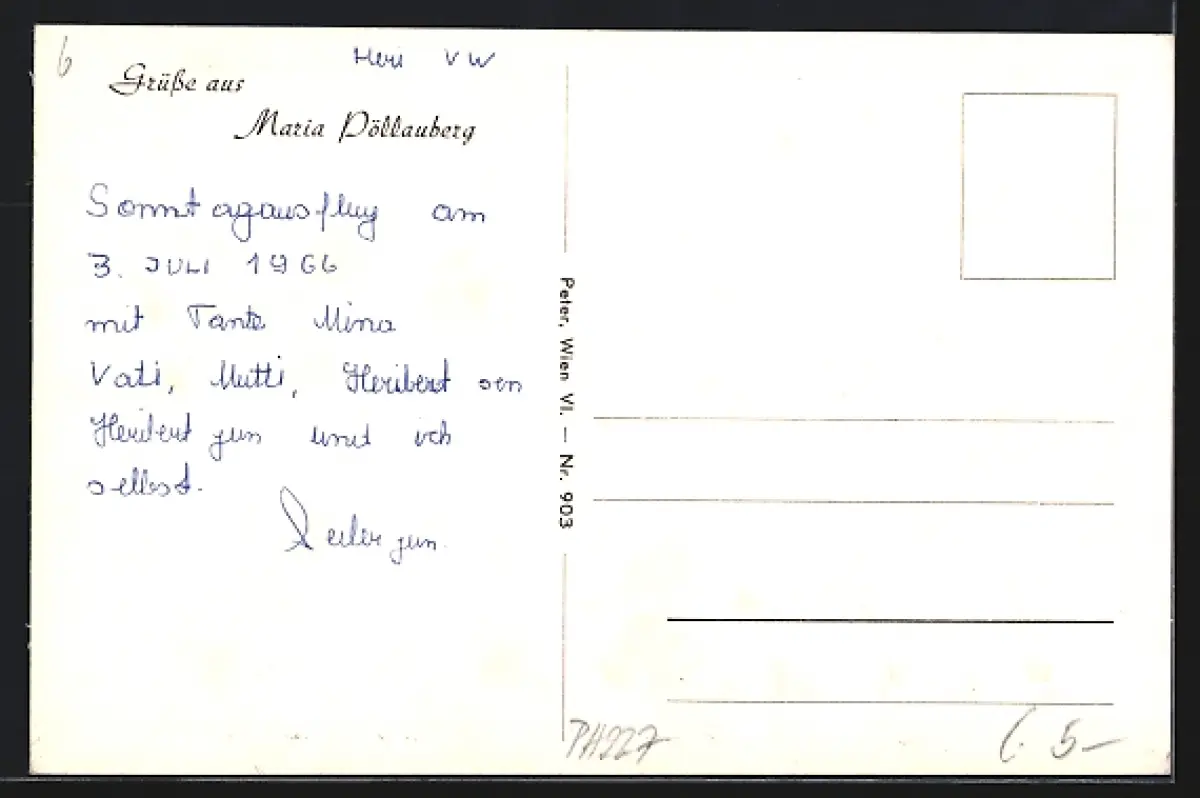 6
Heri VW
Grüße aus
Maria Pöllauberg
Sonntagausflug am
3. JULI 1966
mit Tante Mina
Vati, Mutti, Heribert sen
Heribert jun und ich
selbst.
jun.
Peter, Wien VI. — Nr. 903
PA227
5—